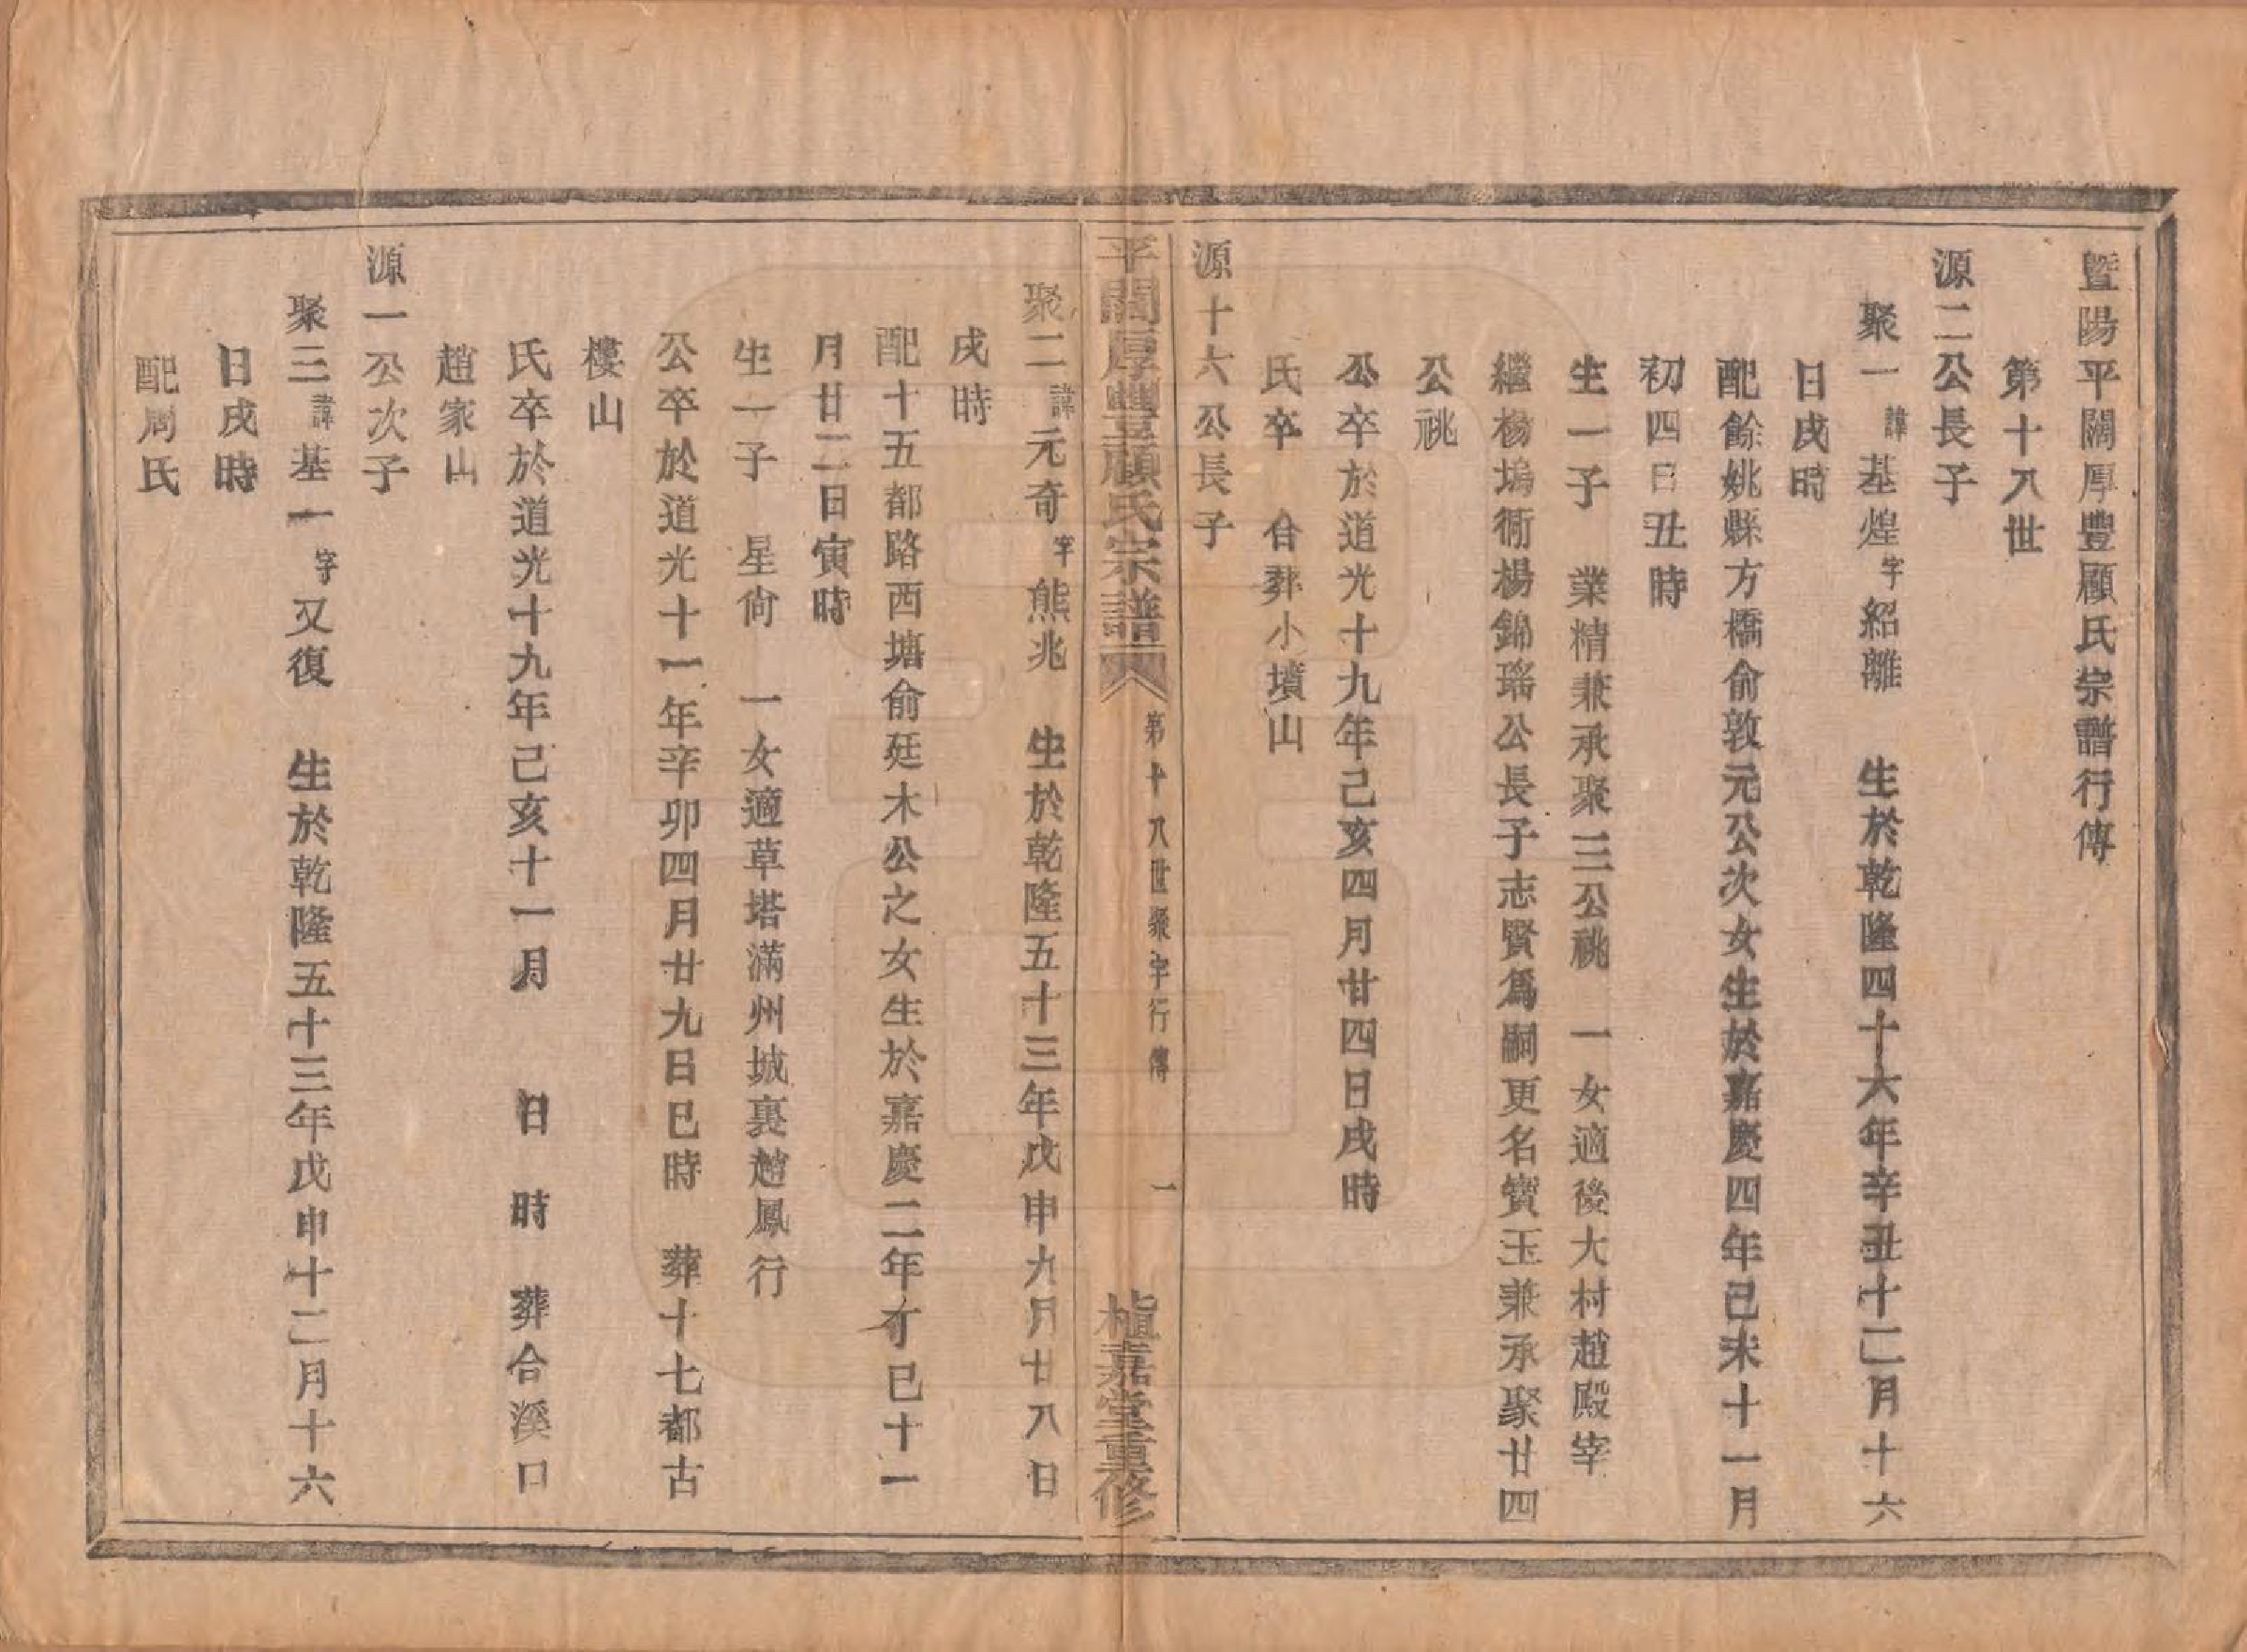 暨陽平闊厚豐顧氏宗譜行傳
第十八世
源二公長子
聚一諱基煌字紹離　生於乾隆四十六年辛丑十二月十六
日戌時
配餘姚縣方橋俞敦元公次女生於嘉慶四年己未十一月
初四日丑時
生一子　業精兼承聚三公祧　一女適後大村趙殿宰
繼楊塢衕楊錦瑤公長子志賢爲嗣更名寶玉兼承聚廿四
公祧
公卒於道光十九年己亥四月廿四日戌時
氏卒　合葬小墳山
源十六公長子
平闊厚豐顧氏宗譜　第十八世聚字行傳　一　植嘉堂重修
聚二諱元奇字熊兆　生於乾隆五十三年戊申九月廿八日
戌時
配十五都路西塘俞廷木公之女生於嘉慶二年丁巳十一
月廿二日寅時
生一子　星尙　一女適草塔滿州城裏趙鳳行
公卒於道光十一年辛卯四月廿九日巳時　葬十七都古
樓山
氏卒於道光十九年己亥十一月　日　時　葬合溪口
趙家山
源一公次子
聚三諱基一字又復　生於乾隆五十三年戊申十二月十六
日戌時
配周氏